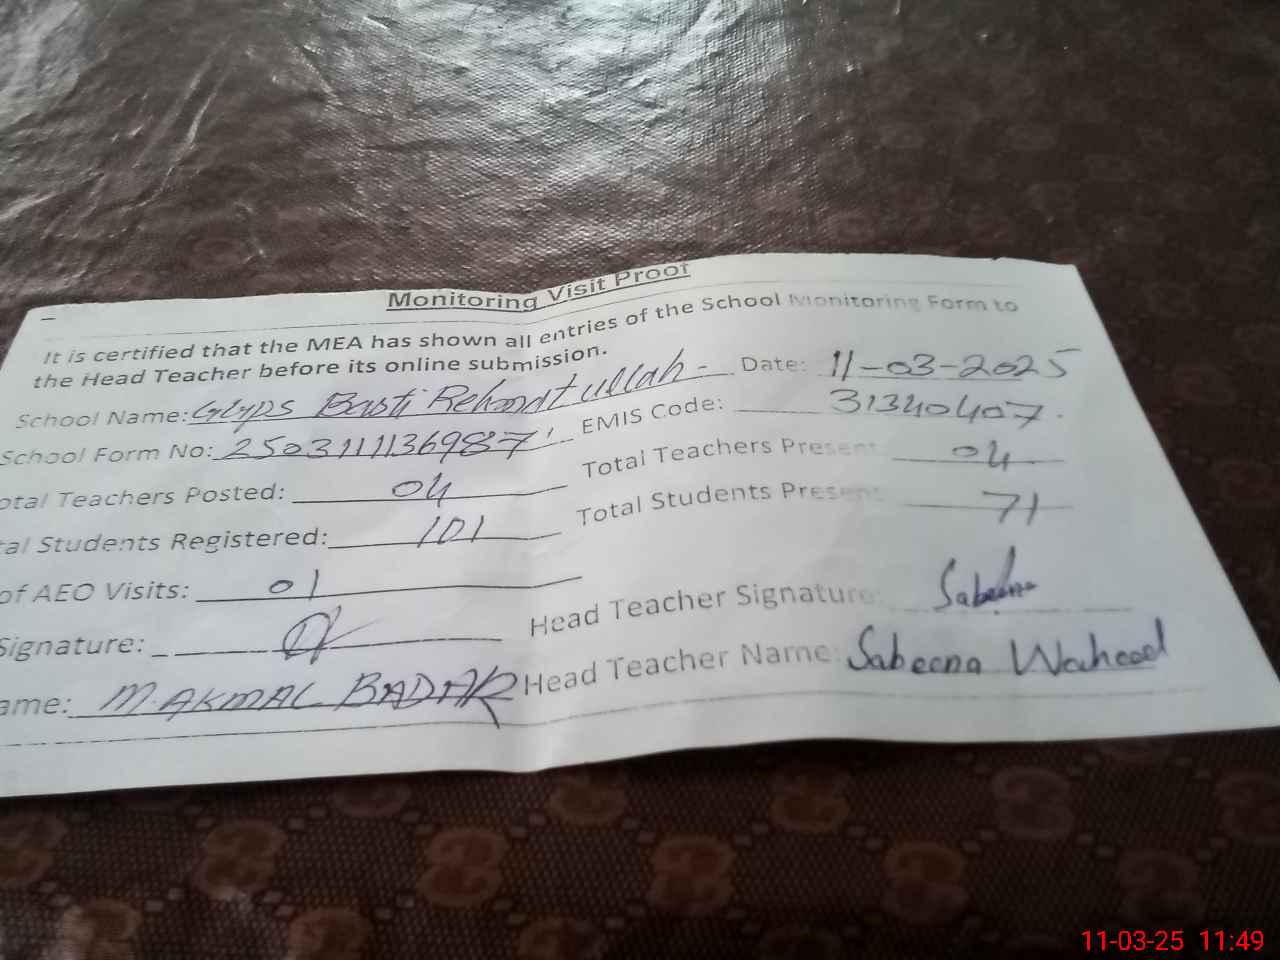 Monitoring Visit Proof
It is certified that the MEA has shown all entries of the School Monitoring Form to
the Head Teacher before its online submission.
School Name: GGPS Basti Rehmatullah - Date: 11-03-2025
School Form No: 25031111369877 EMIS Code: 31340407.
otal Teachers Posted: 04 Total Teachers Present 04
tal Students Registered: 101 Total Students Present 71
of AEO Visits: 01
Signature: Head Teacher Signature: Sabeena
ame: M. AKMAL BADAR Head Teacher Name: Sabeena Waheed
11-03-25 11:49